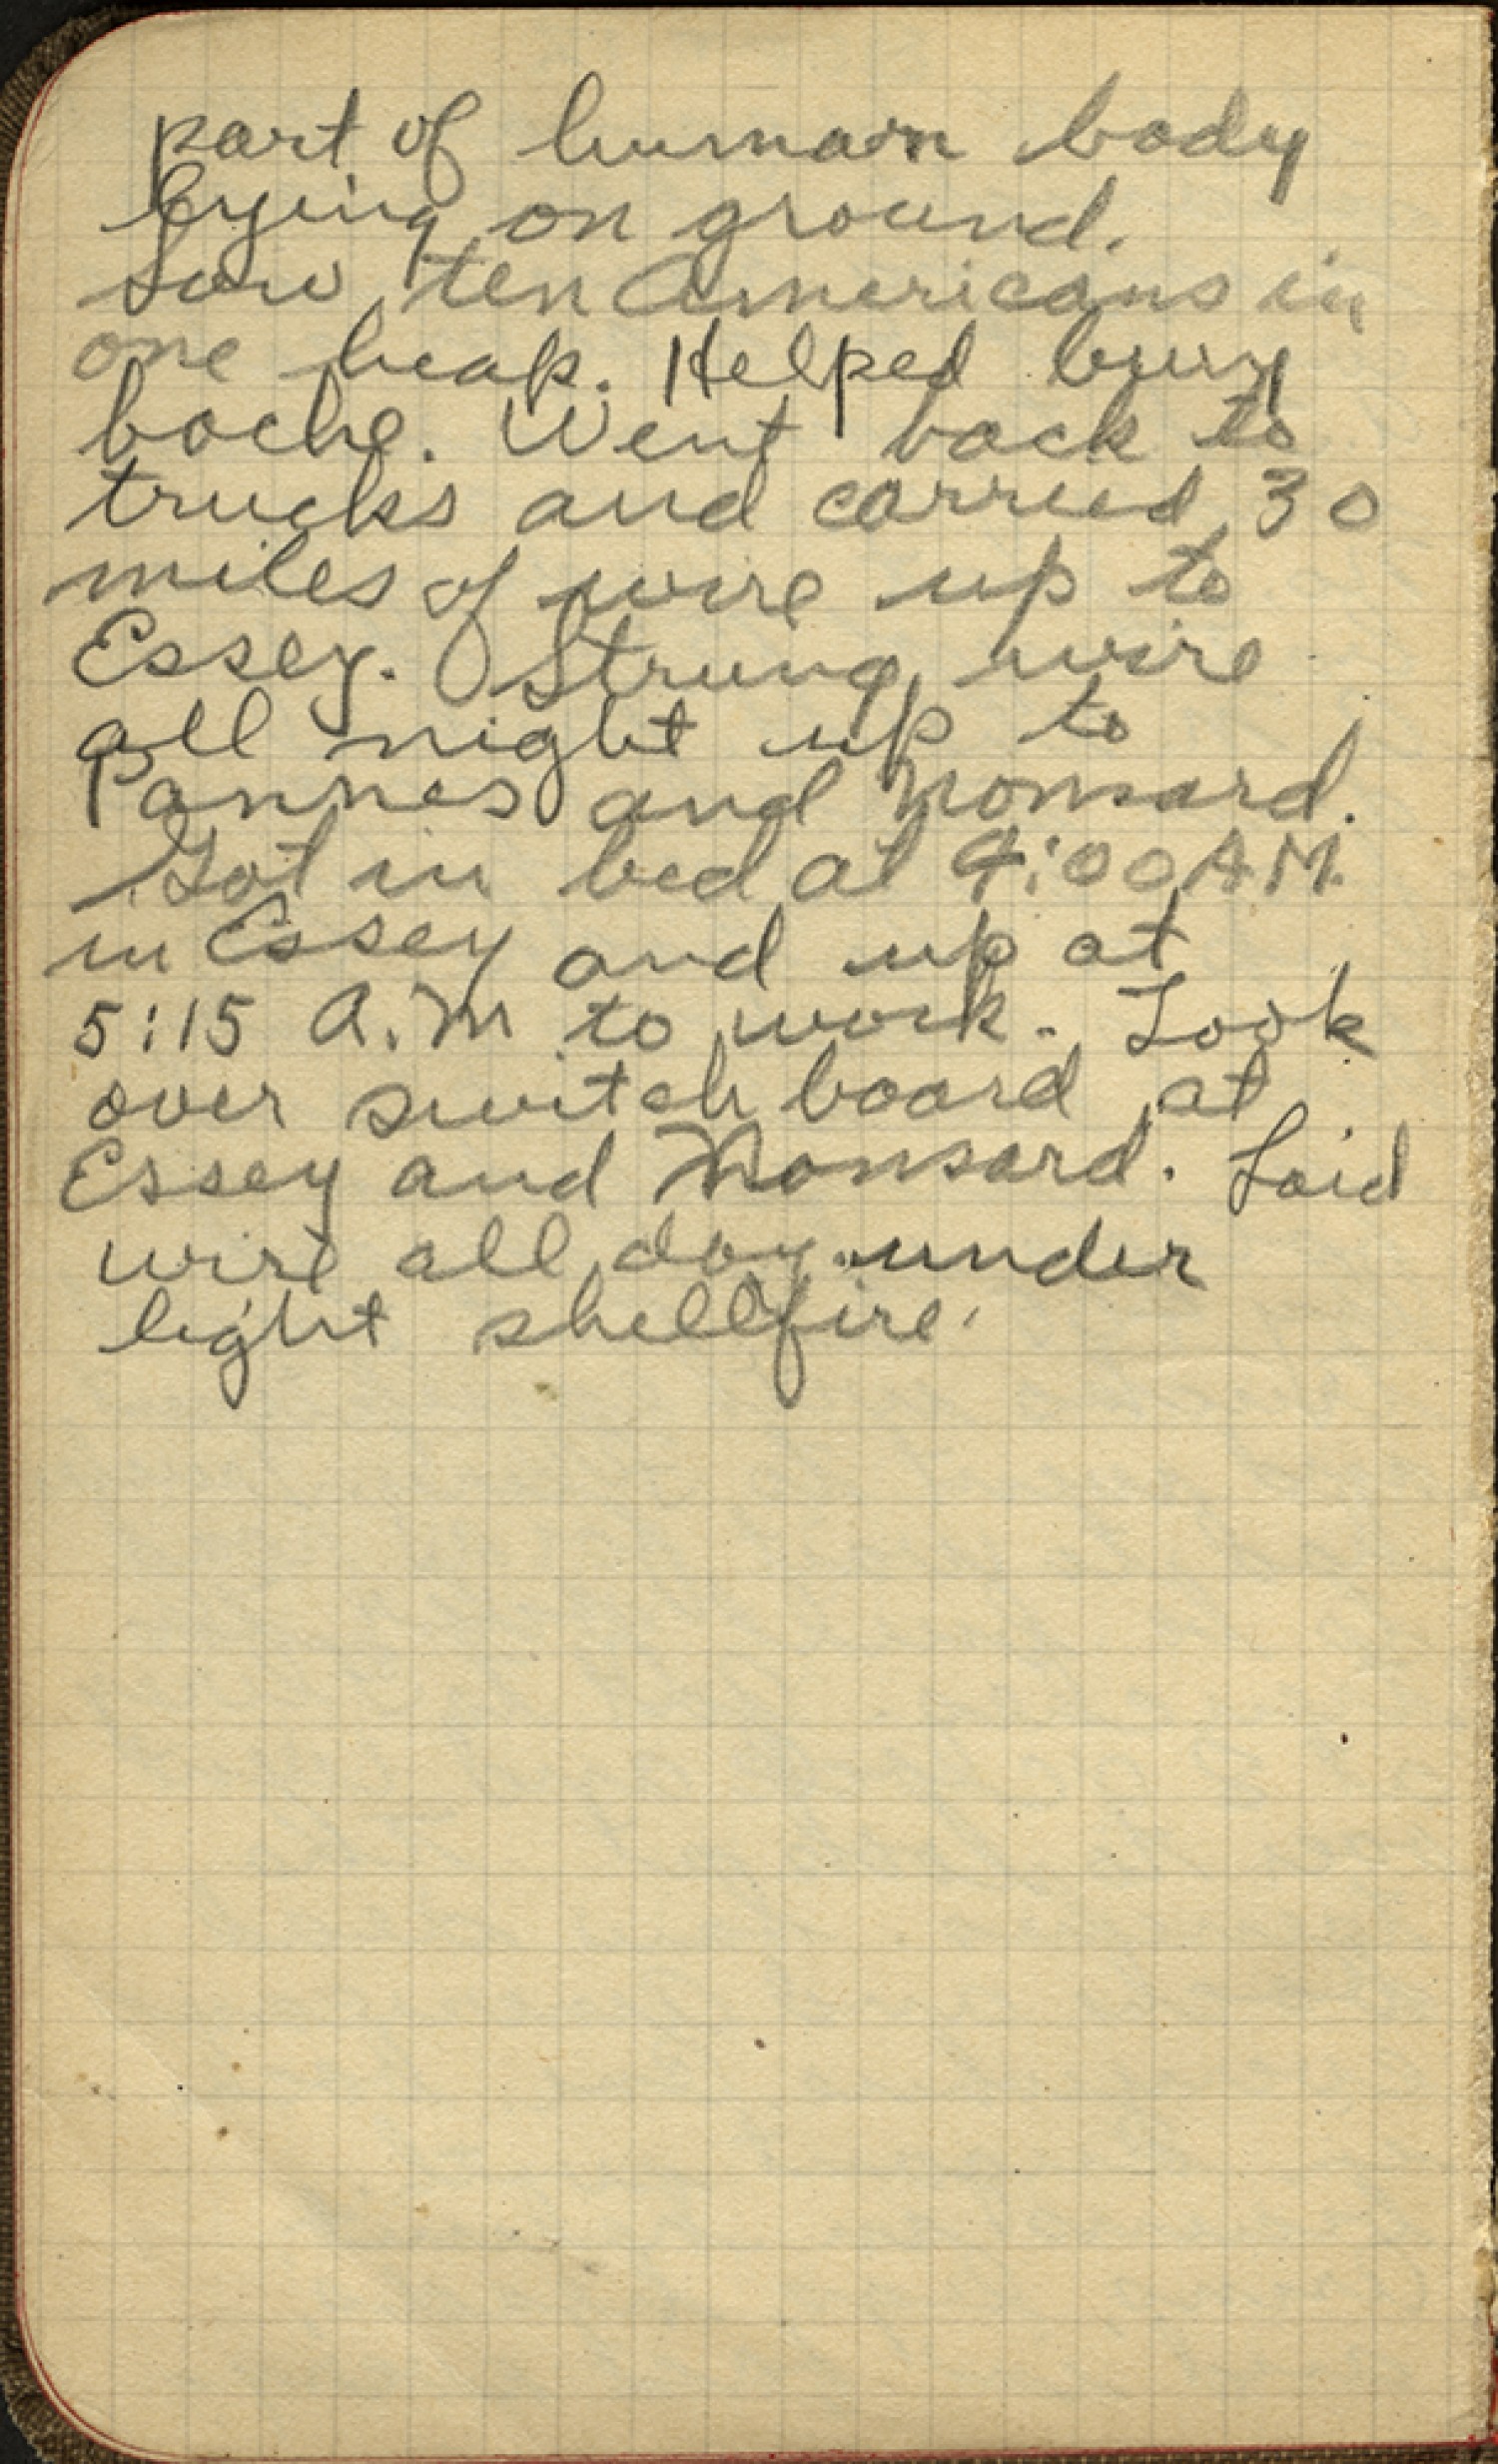 part of human body
lying on ground.
Saw ten Americans in
one heap. Helped bury
boche. Went back to
trucks and carried 30
miles of wire up to
Essey. Strung wire
all night up to
Pannes and Nonsard.
Got in bed at 4:00 A.M.
in Essey and up at
5:15 A.M to work. Took
over switch board at
Essey and Nonsard. Laid
wire all day under
light shellfire.